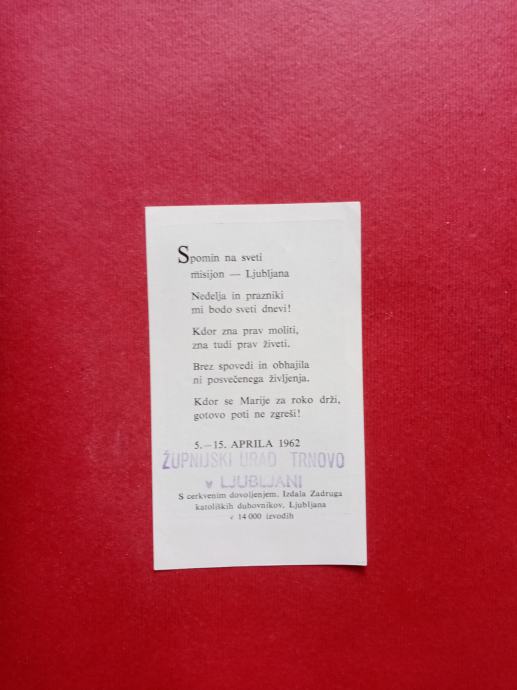 Spomin na sveti
misijon — Ljubljana
Nedelja in prazniki
mi bodo sveti dnevi!
Kdor zna prav moliti,
zna tudi prav živeti.
Brez spovedi in obhajila
ni posvečenega življenja.
Kdor se Marije za roko drži,
gotovo poti ne zgreši!
5.—15. APRILA 1962
ŽUPNIJSKI URAD TRNOVO
v LJUBLJANI
S cerkvenim dovoljenjem. Izdala Zadruga
katoliških duhovnikov, Ljubljana
v 14 000 izvodih